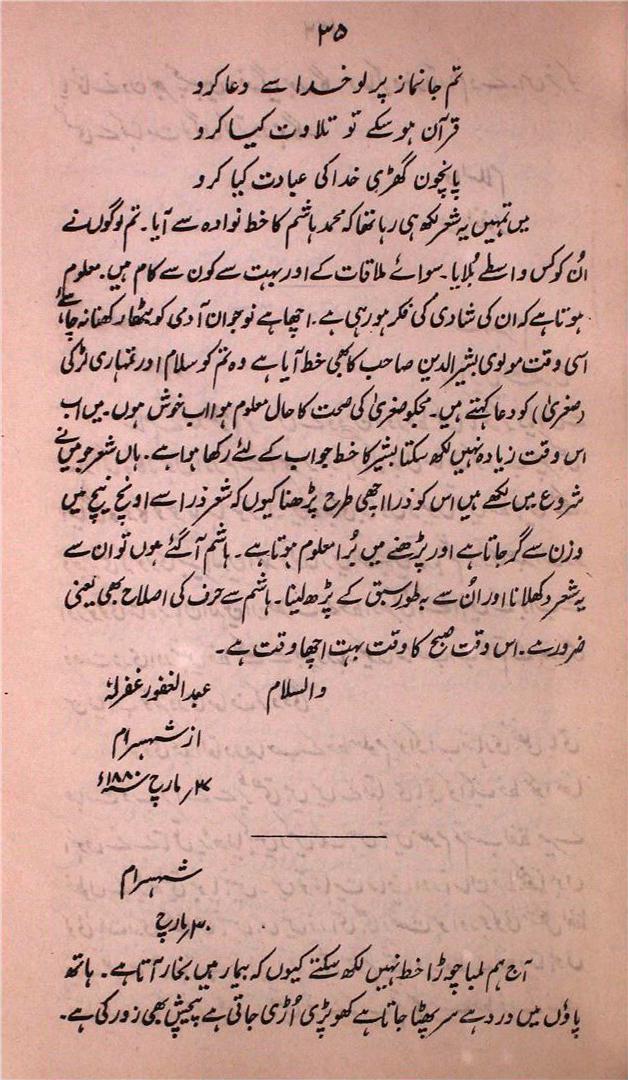 ۳۵
تم جانماز پر لو خدا سے دعا کرو
قرآن ہو سکے تو تلاوت کیا کرو
پانچون گھڑی خدا کی عبادت کیا کرو
میں تمہیں یہ شعر لکھ ہی رہا تھا کہ محمد ہاشم کا خط نوادہ سے آیا۔ تم لوگوں نے
انُ کو کس واسطے بُلایا۔ سوائے ملاقات کے اور بہت سے کون سے کام ہیں۔ معلوم
ہوتا ہے کہ ان کی شادی کی فکر ہو رہی ہے۔ اچھا ہے نوجوان آدمی کو بیٹھا رکھنا نہ چاہئے
اسی وقت مولوی بشیر الدین صاحب کا بھی خط آیا ہے وہ تم کو سلام اور تمہاری لڑکی
(صغریٰ) کو دعا کہتے ہیں۔ مجکو صغریٰ کی صحت کا حال معلوم ہوا اب خوش ہوں۔ میں اب
اس وقت زیادہ نہیں لکھ سکتا بشیر کا خط جواب کے لئے رکھا ہوا ہے۔ ہاں شعر جو میں نے
شروع میں لکھے ہیں اس کو ذرا اچھی طرح پڑھنا کیوں کہ شعر ذرا سے اونچ نیچ میں
وزن سے گر جاتا ہے اور پڑھنے میں بُرا معلوم ہوتا ہے۔ ہاشم آ گئے ہوں تو ان سے
یہ شعر دکھلانا اور انُ سے بہ طور سبق کے پڑھ لینا۔ ہاشم سے حرف کی اصلاح بھی یعنی
ضرور ہے۔ اس وقت صبح کا وقت بہت اچھا وقت ہے۔
والسلام عبد الغفور غفرلہٗ
از شہسرام
مارچ ۱۸۸۰ء
شہسرام
۳۰ مارچ
آج ہم لمبا چوڑا خط نہیں لکھ سکتے کیوں کہ بیمار ہیں بخار آتا ہے۔ ہاتھ
پاؤں میں درد ہے سر پھٹا جاتا ہے کھوپڑی اُڑی جاتی ہے پیچش بھی زور کی ہے۔